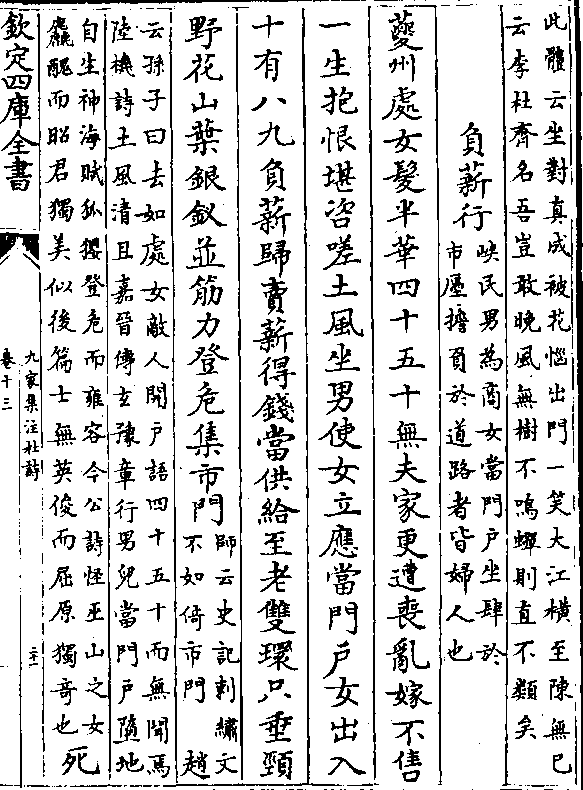 此體云坐對真成被花惱出門一笑大江橫至陳無已
云李杜齊名吾豈敢晚風無樹不鳴蟬則直不類矣
負薪行
峽民男為商女當門戶坐肆於
市廛擔負於道路者皆婦人也
夔州處女髮半華四十五十無夫家更遭喪亂嫁不售
一生抱恨堪咨嗟土風坐男使女立應當門戶女出入
十有八九負薪歸賣薪得錢當供給至老雙環只垂頸
野花山葉銀釵並筋力登危集市門
師云史記刺繡文
不如倚市門 趙
云孫子曰去如處女敵人開戶語四十五十而無聞焉
陸機詩土風清且嘉晉傅玄豫章行男兒當門戶墮地
自生神海賦孤猨登危而雍容今公詩怪巫山之女
麤醜而昭君獨美似後篇士無英俊而屈原獨奇也
死
欽定四庫全書
九家集注杜詩
卷十三